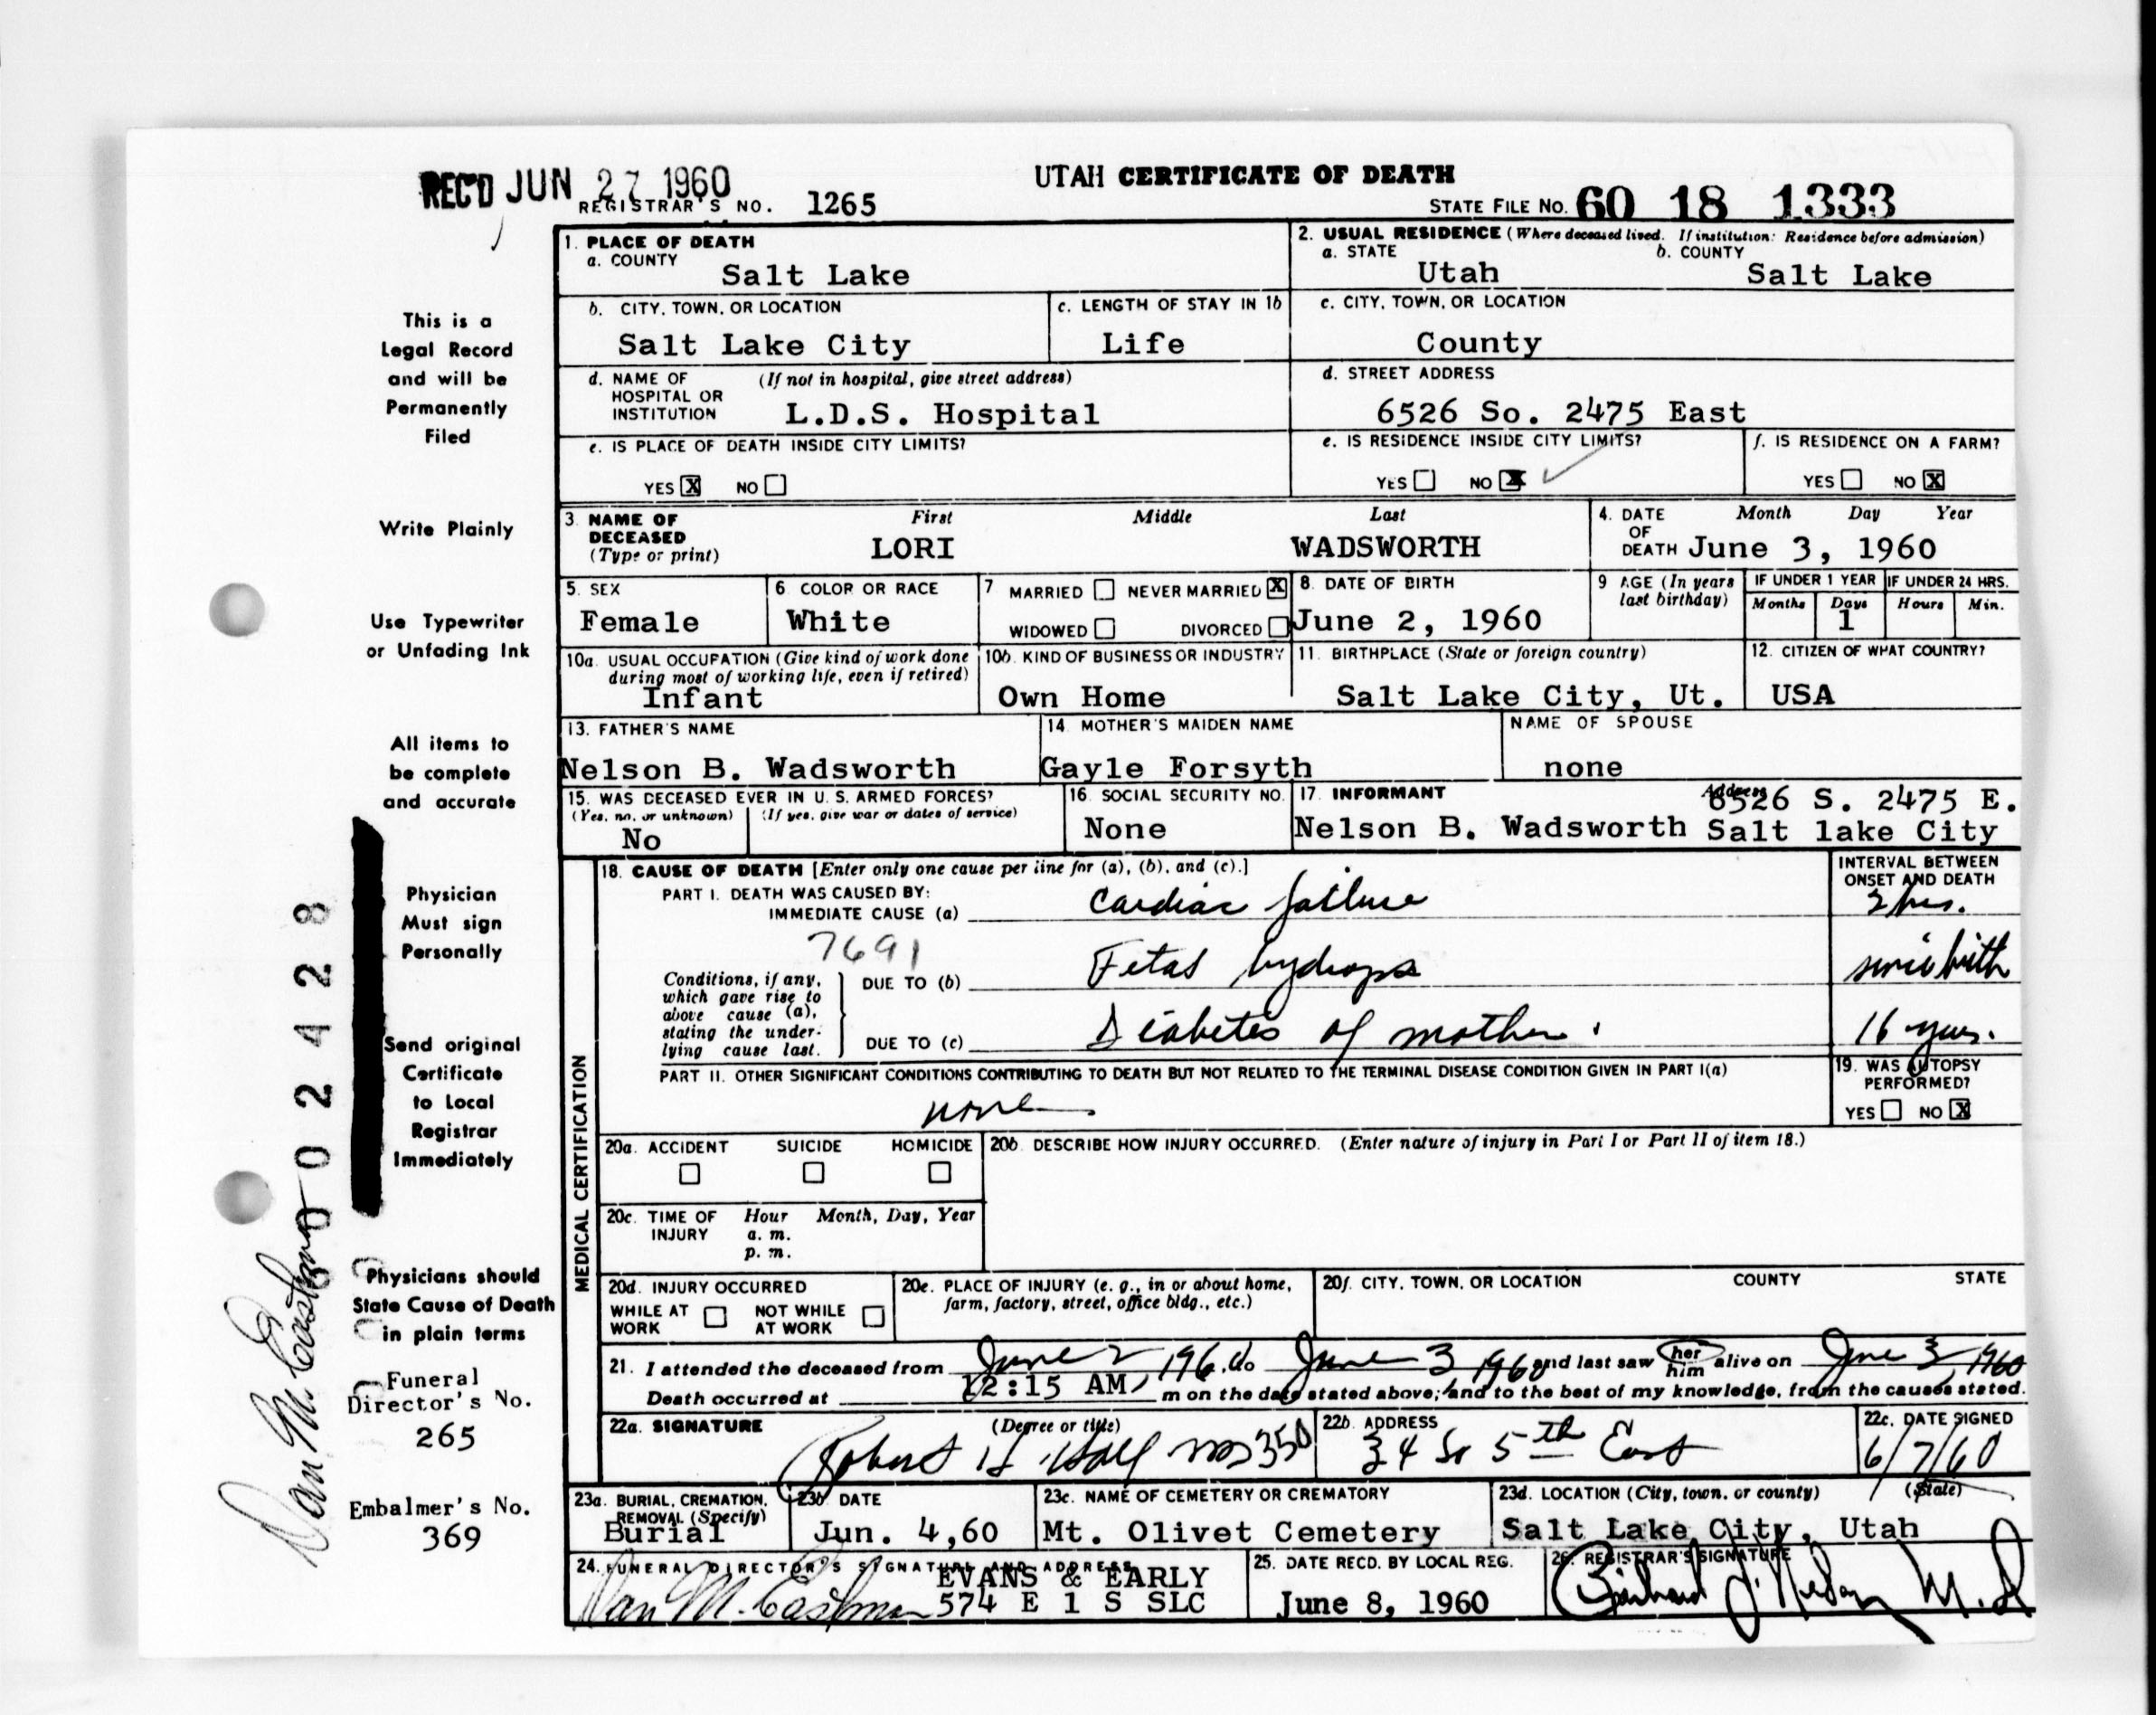 REC'D JUN 27 1960
UTAH CERTIFICATE OF DEATH
REGISTRAR'S NO. 1265
STATE FILE NO. 60 18 1333
This is a
Legal Record
and will be
Permanently
Filed
Write Plainly
Use Typewriter
or Unfading Ink
All items to
be complete
and accurate
Physician
Must sign
Personally
Send original
Certificate
to Local
Registrar
Immediately
Physicians should
State Cause of Death
in plain terms
Funeral
Director's No.
265
Embalmer's No.
369
Dan M. Eastman
0 0 2 4 2 8
1. PLACE OF DEATH
a. COUNTY
Salt Lake
2. USUAL RESIDENCE (Where deceased lived. If institution: Residence before admission)
a. STATE
Utah
b. COUNTY
Salt Lake
b. CITY, TOWN, OR LOCATION
Salt Lake City
c. LENGTH OF STAY IN 1b
Life
c. CITY, TOWN, OR LOCATION
County
d. NAME OF (If not in hospital, give street address)
HOSPITAL OR
INSTITUTION
L.D.S. Hospital
d. STREET ADDRESS
6526 So. 2475 East
e. IS PLACE OF DEATH INSIDE CITY LIMITS?
YES X NO
e. IS RESIDENCE INSIDE CITY LIMITS?
YES NO X
f. IS RESIDENCE ON A FARM?
YES NO X
3. NAME OF
DECEASED
(Type or print)
First Middle Last
LORI WADSWORTH
4. DATE
OF
DEATH
Month Day Year
June 3, 1960
5. SEX
Female
6. COLOR OR RACE
White
7. MARRIED NEVER MARRIED X
WIDOWED DIVORCED
8. DATE OF BIRTH
June 2, 1960
9. AGE (In years
last birthday)
IF UNDER 1 YEAR
Months Days
1
IF UNDER 24 HRS.
Hours Min.
10a. USUAL OCCUPATION (Give kind of work done
during most of working life, even if retired)
Infant
10b. KIND OF BUSINESS OR INDUSTRY
Own Home
11. BIRTHPLACE (State or foreign country)
Salt Lake City, Ut.
12. CITIZEN OF WHAT COUNTRY?
USA
13. FATHER'S NAME
Nelson B. Wadsworth
14. MOTHER'S MAIDEN NAME
Gayle Forsyth
NAME OF SPOUSE
none
15. WAS DECEASED EVER IN U. S. ARMED FORCES?
(Yes, no, or unknown) (If yes, give war or dates of service)
No
16. SOCIAL SECURITY NO.
None
17. INFORMANT Address
Nelson B. Wadsworth
6526 S. 2475 E.
Salt lake City
MEDICAL CERTIFICATION
18. CAUSE OF DEATH [Enter only one cause per line for (a), (b), and (c).]
PART I. DEATH WAS CAUSED BY:
IMMEDIATE CAUSE (a) Cardiac failure
INTERVAL BETWEEN
ONSET AND DEATH
2 hrs.
7691
Conditions, if any,
which gave rise to
above cause (a),
stating the under-
lying cause last.
DUE TO (b) Fetal hydrops
since birth
DUE TO (c) Diabetes of mother.
16 years.
PART II. OTHER SIGNIFICANT CONDITIONS CONTRIBUTING TO DEATH BUT NOT RELATED TO THE TERMINAL DISEASE CONDITION GIVEN IN PART I(a)
none
19. WAS AUTOPSY
PERFORMED?
YES NO X
20a. ACCIDENT SUICIDE HOMICIDE
20b. DESCRIBE HOW INJURY OCCURRED. (Enter nature of injury in Part I or Part II of item 18.)
20c. TIME OF
INJURY
Hour Month, Day, Year
a. m.
p. m.
20d. INJURY OCCURRED
WHILE AT
WORK
NOT WHILE
AT WORK
20e. PLACE OF INJURY (e. g., in or about home,
farm, factory, street, office bldg., etc.)
20f. CITY, TOWN, OR LOCATION COUNTY STATE
21. I attended the deceased from June 2 1960 to June 3 1960 and last saw her him alive on June 3, 1960
Death occurred at 12:15 AM, m on the date stated above; and to the best of my knowledge, from the causes stated.
22a. SIGNATURE (Degree or title)
Robert H. Wolf MD 350
22b. ADDRESS
34 So 5th East
22c. DATE SIGNED
6/7/60
23a. BURIAL, CREMATION,
REMOVAL (Specify)
Burial
23b. DATE
Jun. 4,60
23c. NAME OF CEMETERY OR CREMATORY
Mt. Olivet Cemetery
23d. LOCATION (City, town, or county) (State)
Salt Lake City, Utah
24. FUNERAL DIRECTOR'S SIGNATURE AND ADDRESS
Dan M. Eastman
EVANS & EARLY
574 E 1 S SLC
25. DATE RECD. BY LOCAL REG.
June 8, 1960
26. REGISTRAR'S SIGNATURE
M.D